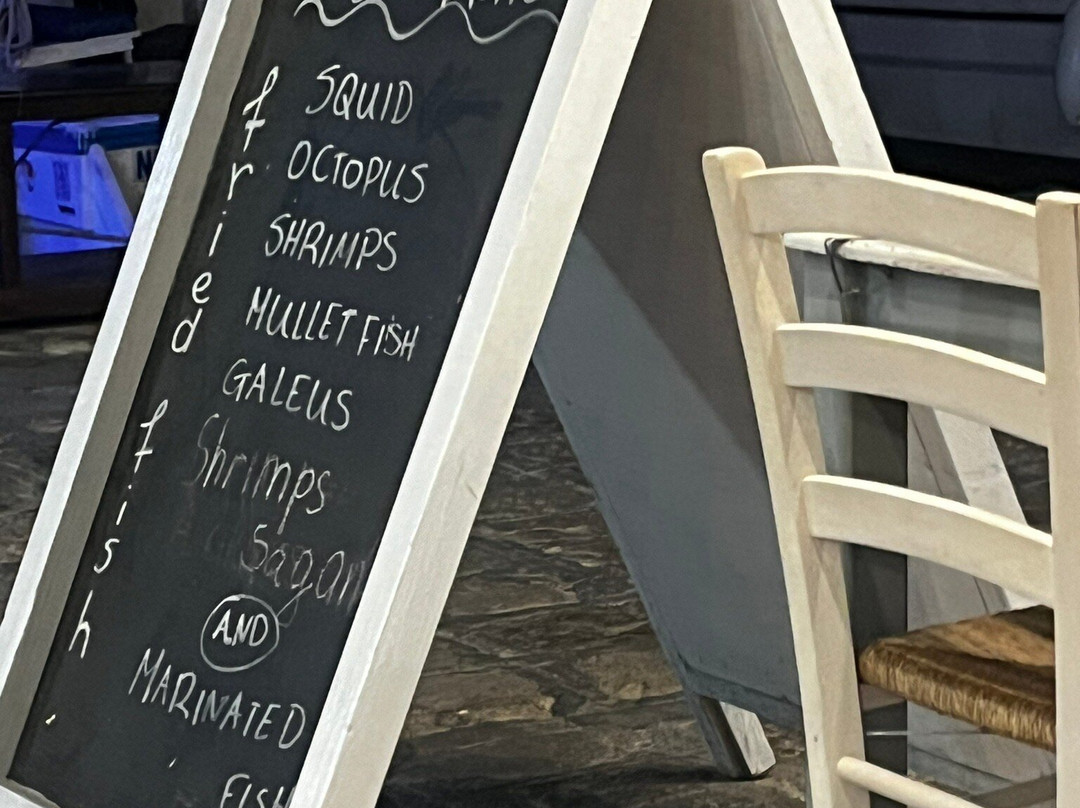 fried fish
SQUID
OCTOPUS
SHRIMPS
MULLET FISH
GALEUS
Shrimps
Sagan
AND
MARINATED
FISH